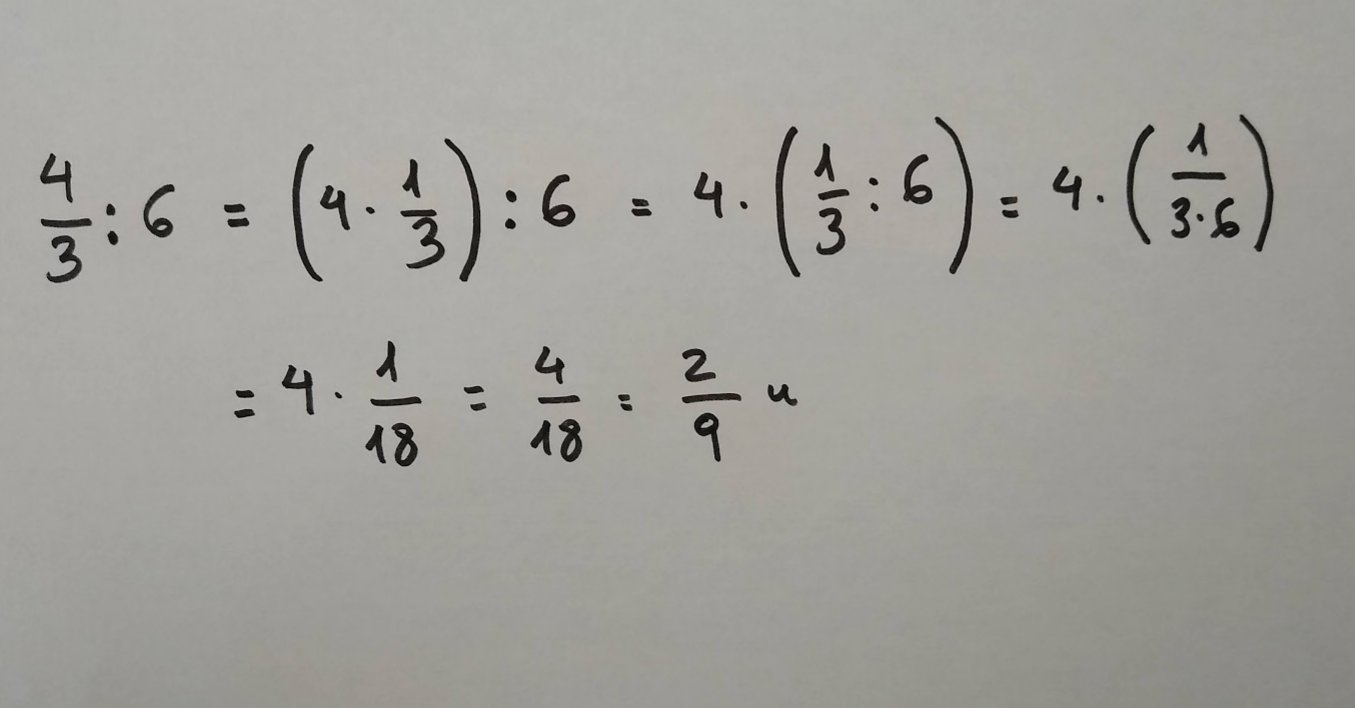 4/3 : 6 = (4 · 1/3) : 6 = 4 · (1/3 : 6) = 4 · (1/(3·6))
= 4 · 1/18 = 4/18 = 2/9 u